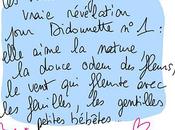 vraie révélation
pour Bidounette n°1 :
elle aime la nature
la douce odeur des fleurs,
le vent qui fleurete avec
les feuilles, les gentilles
petites bébêtes.